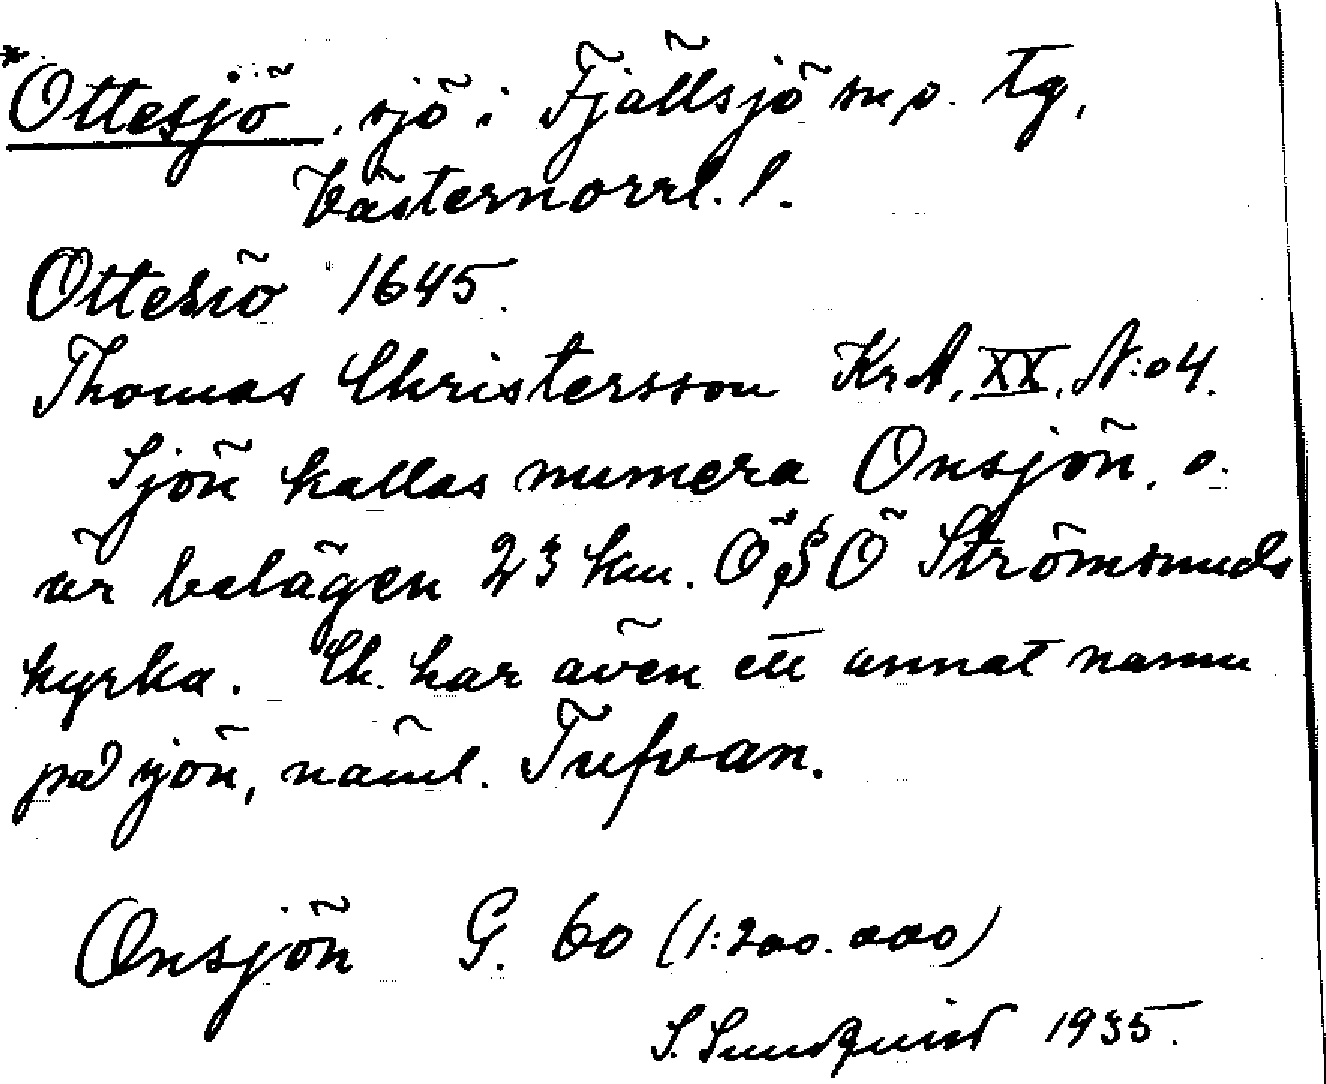 *Ottesjö, sjö i Fjällsjö sn o. tg,
Västernorrl. l.
Ottesiö 1645.
Thomas Christersson KrA, XX, N:o 4.
Sjön kallas numera Onsjön, o.
är belägen 23 km. ÖSÖ Strömsunds
kyrka. Ch. har även ett annat namn
på sjön, näml. Tufvan.
Onsjön G. 60 (1:200.000)
S. Sundquist 1935.